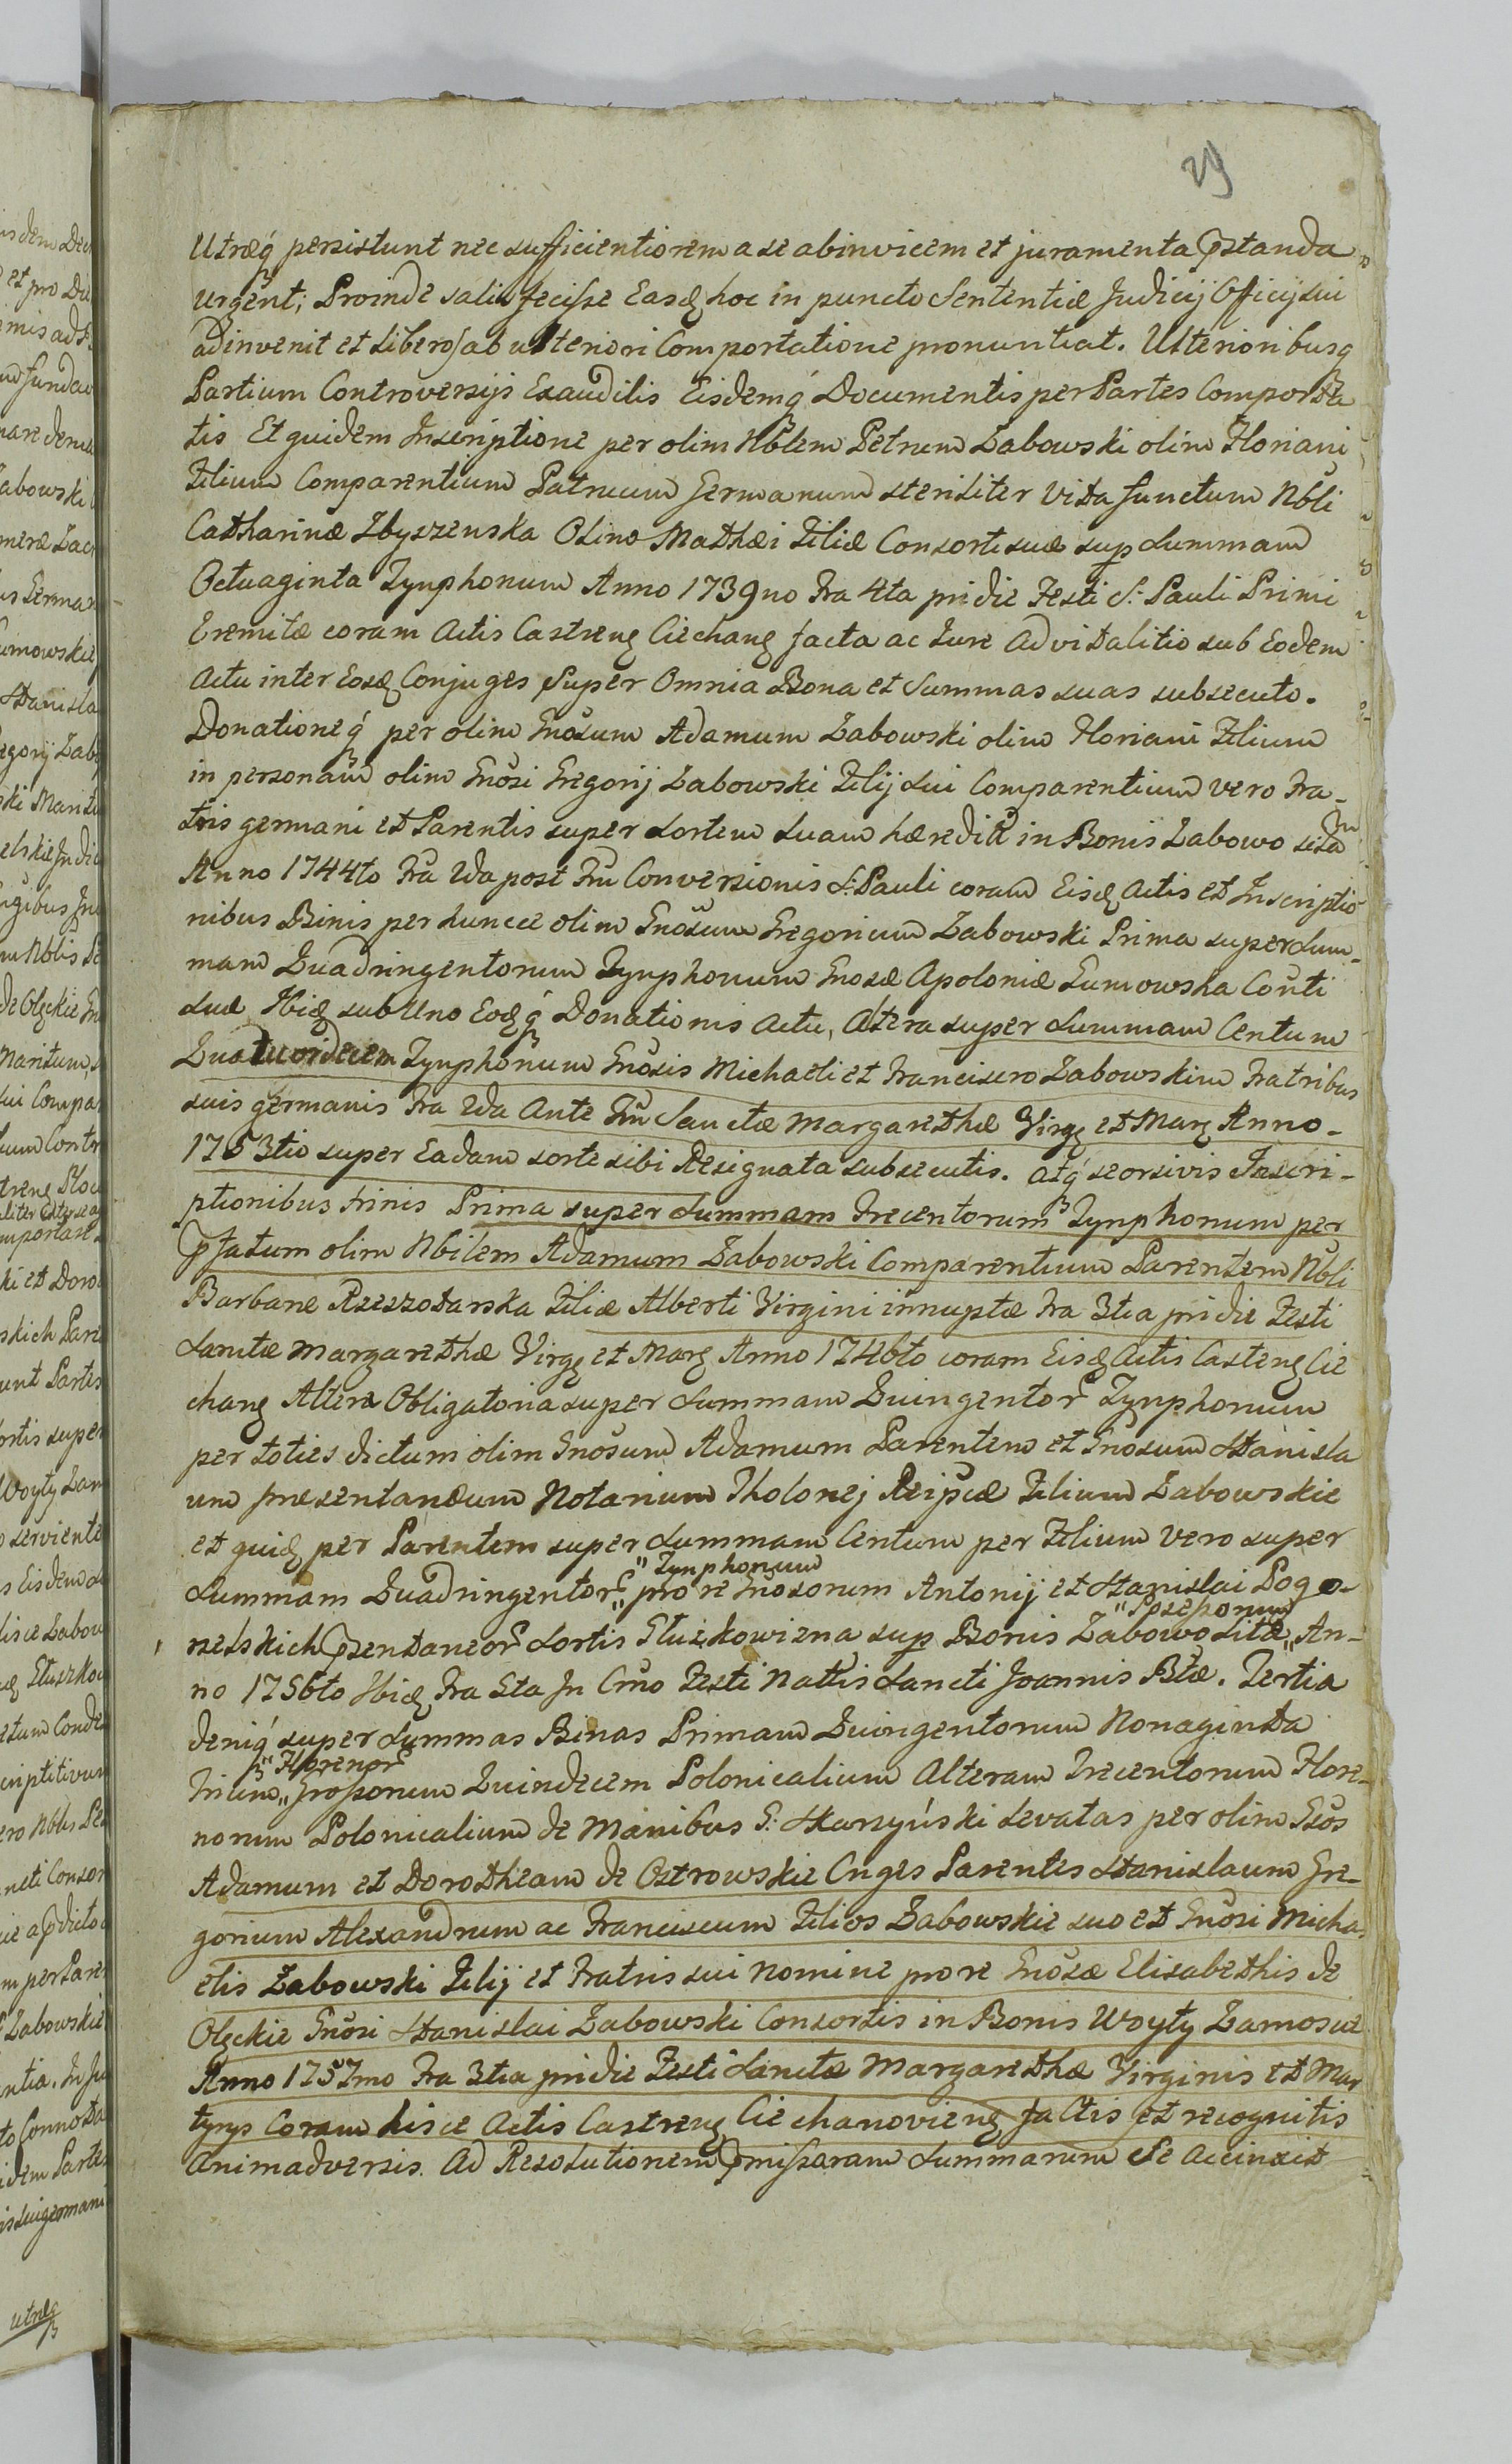 29
Utræq persistunt nec sufficientiorem a se abinvicem et juramenta pstanda
urgent; Proinde satisfecisse Easd hoc in puncto Sententiæ Judicij Officij sui
adinvenit et liberos ab ulteriori Comportatione pronuntiat. Ulterioribusq
Partium Controversijs Exauditis Eisdemq Documentis per Partes Comporta
tis Et quidem Inscriptione per olim Nblem Petrum Zabowski olim Floriani
Filium Comparentium Patruum Germanum steriliter vita functum Nbli
Catharinæ Zbyszenska Olim Mathæi Filiæ Consorti suæ sup Summam
Octuaginta Tynphonum Anno 1739no Fra 4ta pridie Festi S. Pauli Primi
Eremitæ coram Actis Castren Ciechan facta ac Jure Advitalitio sub Eodem
Actu inter Eosd Conjuges Super Omnia Bona et Summas suas subsecuto.
Donationeq per olim Gnosum Adamum Zabowski olim Floriani Filium
in personam olim Gnosi Gregorij Zabowski Filij sui Comparentium vero Fra-
tris germani et Parentis super Sortem Suam hæredit in Bonis Zabowo sitam
Anno 1744to Fra 2da post Fm Conversionis S. Pauli coram Eisd Actis et Inscriptio
nibus Binis per huncce olim Gnosum Gregorium Zabowski Prima super Sum-
mam Quadringentorum Tynphonum Gnosæ Apoloniæ Sumowska Conti
Suæ Ibid sub Uno Eodq Donationis Actu, Altera super Summam Centum
Quatuordecem Tynphonum Gnosis Michaeli et Francisco Zabowskim Fratribus
suis germanis Fra 2da Ante Fm Sanctæ Margarethæ Virg et Mar Anno-
1753tio super Eadam sorte sibi Resignata subsecutis. Atq seorsivis Inscri-
ptionibus trinis Prima super Summam Trecentorum Tynphonum per
pfatum olim Nbilem Adamum Zabowski Comparentium Parentem Nbli
Barbaræ Rzeszotarska Filiæ Alberti Virgini innuptæ Fra 3tia pridie Festi
Sanctæ Margarethæ Virg et Mar Anno 1746to coram Eisd Actis Casten Cie
chan Altera Obligatoria super Summam Quingentor Tynphonum
per toties dictum olim Gnosum Adamum Parentem et Gnosum Stanisla
um presentaneum Notarium Tholonej Reipcæ Filium Zabowskie
et quid per Parentem super Summam Centum per Filium vero super
"Tynphonum
Summam Quadringentor" pro re Gnosorum Antonij et Stanislai Pogo-
"Poseponum
rzelskich psentaneor Sortis Głuzkowizna sup Bonis Zabowo Sitæ" An-
no 1756to Ibid Fra 5ta In Cmo Festi Nattis Sancti Joannis Btæ. Tertia
deniq super Summas Binas Primam Quingentorum Nonaginta
"Florenor
Trium" Grossorum Quindecem Polonicalium Alteram Trecentorum Flore-
norum Polonicalium de Manibus G. Skarzyński Levatas per olim Gsos
Adamum et Dorotheam de Ostrowskie Cnges Parentes Stanislaum Gre-
gorium Alexandrum ac Franciscum Filios Zabowskie suo et Gnosi Micha
elis Zabowski Filij et Fratris sui Nomine pro re Gnosæ Elisabethis de
Olęckie Gnosi Stanislai Zabowski Consortis in Bonis Woyty Zamosce
Anno 1757mo Fra 3tia pridie Festi Sanctæ Margarethæ Virginis et Mar
tyrys Coram hisce Actis Castren Ciechanovien factis et recognitis
Animadversis. Ad Resolutionem pmissaram Summarum Se Accinxit